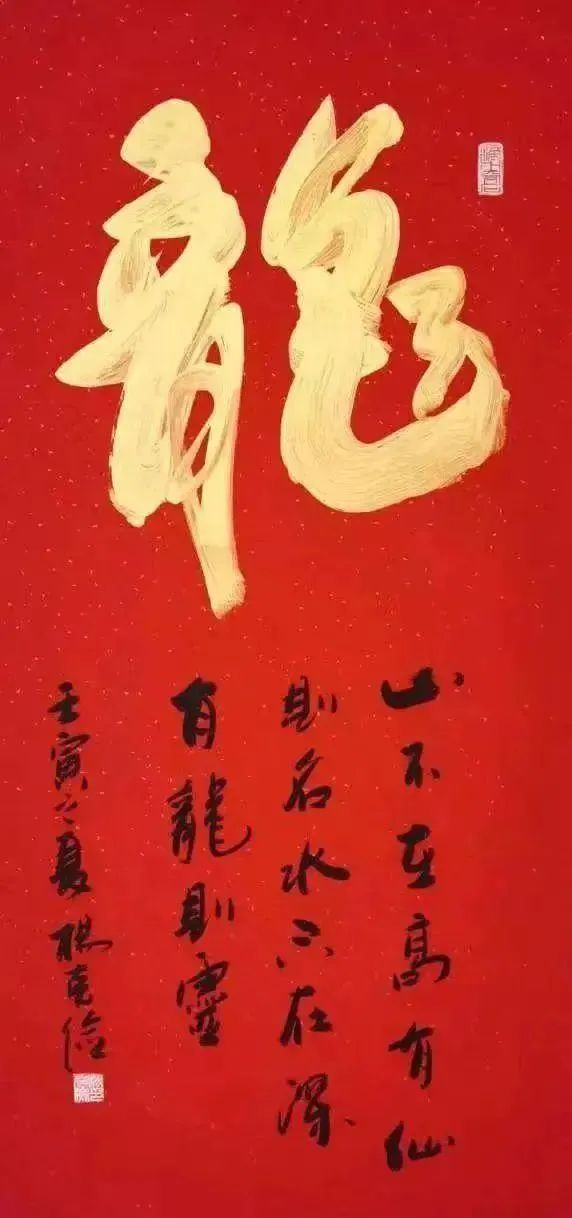 龍
山不在高有仙
則名水不在深
有龍則靈
壬寅之夏